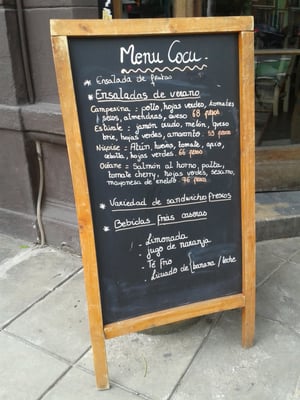 Menu Cocu.
* Ensalada de frutas
* Ensaladas de verano
Campesina = pollo, hojas verdes, tomates
y secos, almendras, queso 68 pesos
Estivale = jamón crudo, melón, queso
brie, hojas verdes, amaranto. 59 pesos
Niçoise = Atún, huevo, tomate, apio,
cebolla, hojas verdes. 66 pesos
Océane = Salmón al horno, palta,
tomate cherry, hojas verdes, sésamo,
mayonesa de eneldo. 76 pesos
* Variedad de sandwichs frescos
* Bebidas frías caseras
- Limonada
- jugo de naranja
- Té frío
- Licuado de { banana / leche